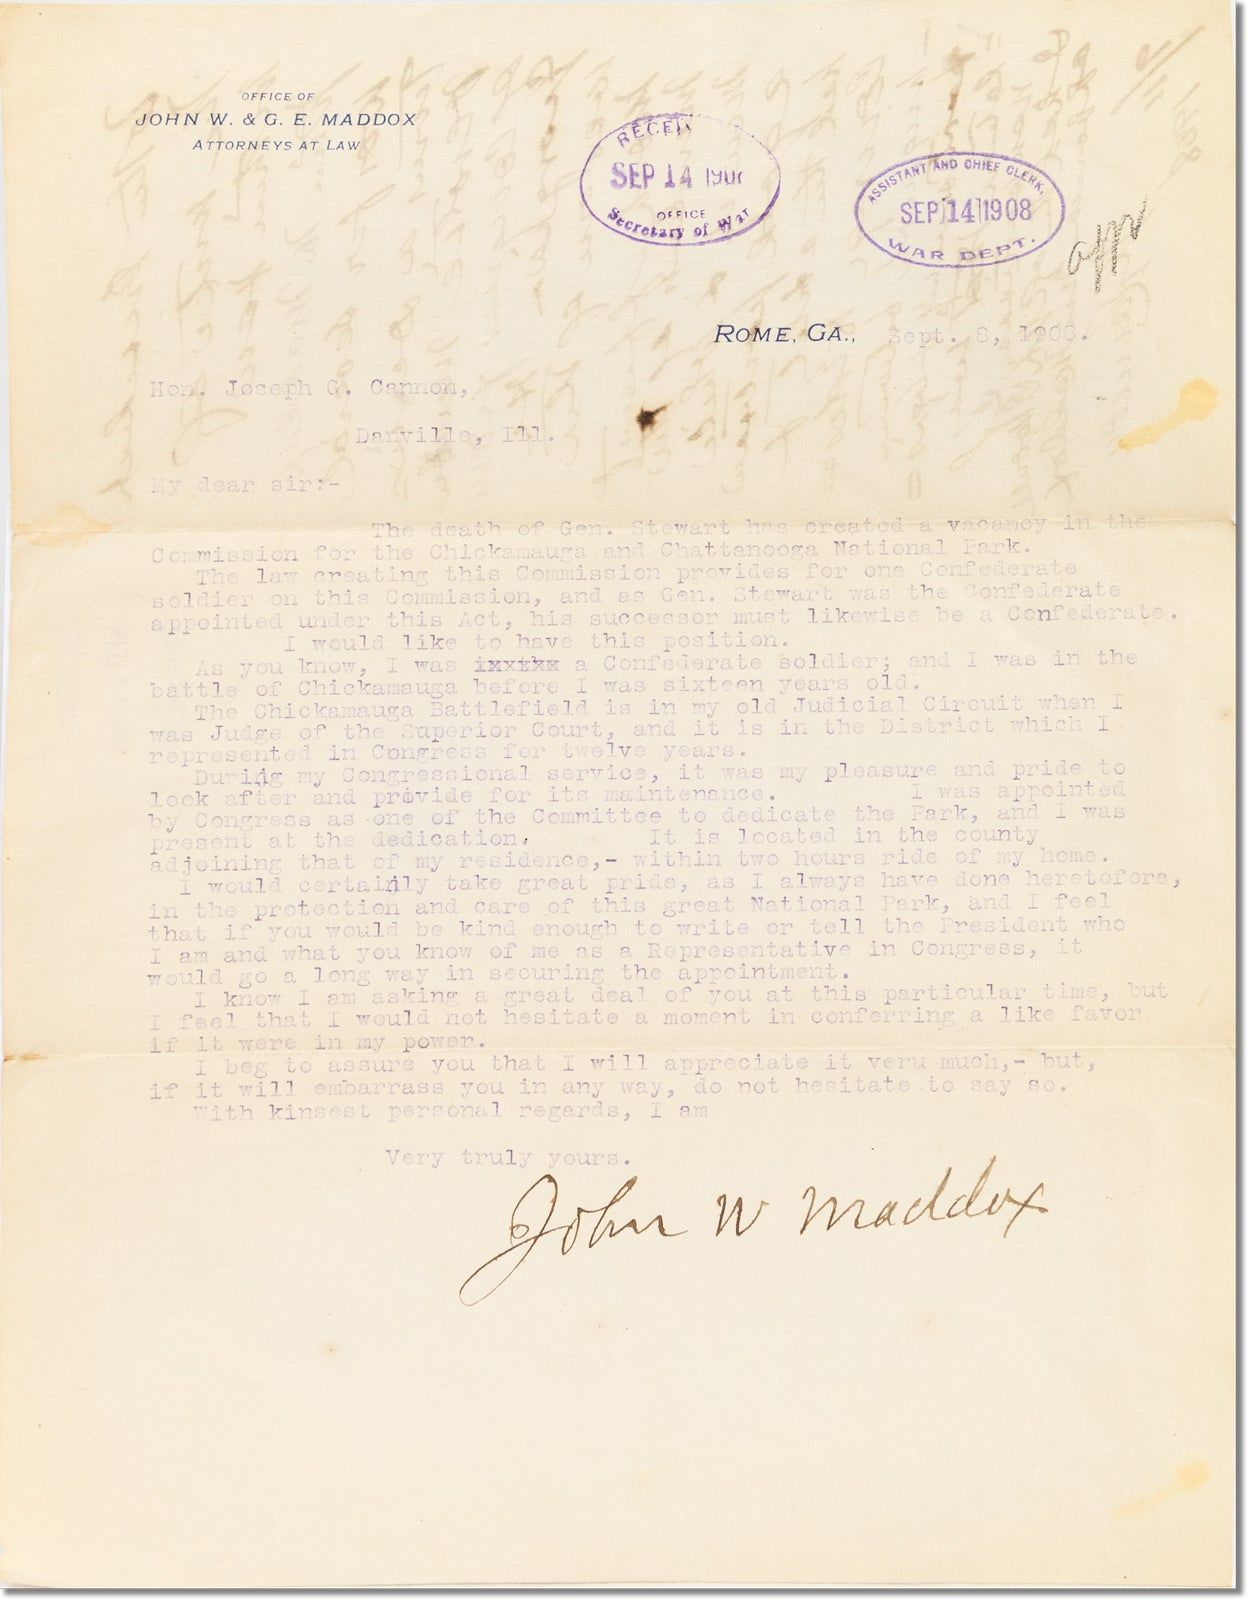 OFFICE OF
JOHN W. & G. E. MADDOX
ATTORNEYS AT LAW
SEP 14
OFFICE
Secretary of War
ASSISTANT AND CHIEF CLERK,
SEP 14 1908
WAR DEPT.
ROME, GA., Sept. 8, 1908.
Hon. Joseph G. Cannon,
Danville, Ill.
My dear sir:-
The death of Gen. Stewart has created a vacancy in the
Commission for the Chickamauga and Chattanooga National Park.
The law creating this Commission provides for one Confederate
soldier on this Commission, and as Gen. Stewart was the Confederate
appointed under this Act, his successor must likewise be a Confederate.
I would like to have this position.
As you know, I was a Confederate soldier; and I was in the
battle of Chickamauga before I was sixteen years old.
The Chickamauga Battlefield is in my old Judicial Circuit when I
was Judge of the Superior Court, and it is in the District which I
represented in Congress for twelve years.
During my Congressional service, it was my pleasure and pride to
look after and provide for its maintenance. I was appointed
by Congress as one of the Committee to dedicate the Park, and I was
present at the dedication. It is located in the county
adjoining that of my residence,- within two hours ride of my home.
I would certainly take great pride, as I always have done heretofore,
in the protection and care of this great National Park, and I feel
that if you would be kind enough to write or tell the President who
I am and what you know of me as a Representative in Congress, it
would go a long way in securing the appointment.
I know I am asking a great deal of you at this particular time, but
I feel that I would not hesitate a moment in conferring a like favor
if it were in my power.
I beg to assure you that I will appreciate it veru much,- but,
if it will embarrass you in any way, do not hesitate to say so.
With kinsest personal regards, I am
Very truly yours.
John W Maddox